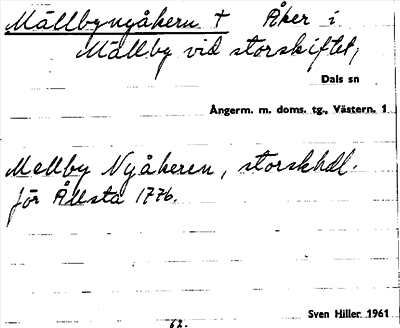 Mällbynyåkern + Åker i
Mällby vid storskiftet,
Dals sn
Ångerm. m. doms. tg., Västern. 1
Mellby Nyåkeren, storskhdl.
för Ållsta 1776.
Sven Hiller 1961
62.